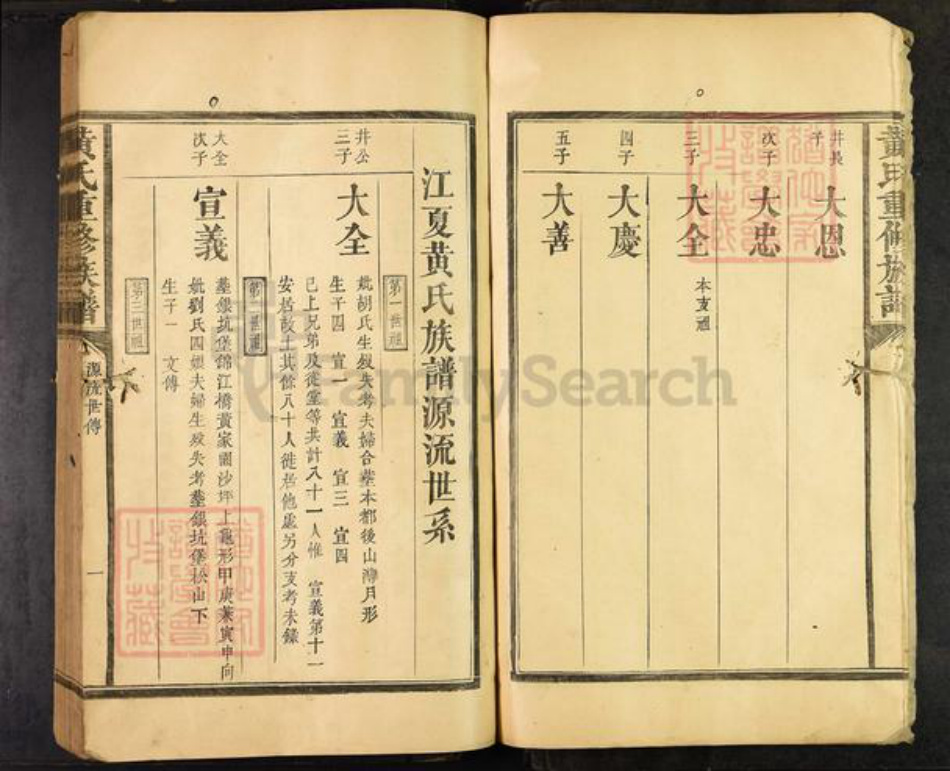 黃氏重修族譜
井長子
大恩
次子
大忠
三子
大全
本支祖
四子
大慶
五子
大善
江夏黃氏族譜源流世系
第一世祖
井公三子
大全
妣胡氏生歿失考夫婦合塟本都後山灣月形
生子四 宣一 宣義 宣三 宣四
已上兄弟及從堂等共計八十一人惟 宣義第十一
安居故土其餘八十人徙居他處另分支考未錄
第二世祖
大全次子
宣義
塟銀坑堡錦江橋黃家園沙坪上龜形甲庚兼寅申向
妣劉氏四娘夫婦生歿失考塟銀坑堡松山下
生子一 文傳
第三世祖
黃氏重修族譜
源流世傳
一
FamilySearch